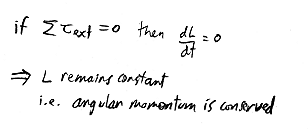 if Στext = 0 then dL/dt = 0
⇒ L remains constant
i.e. angular momentum is conserved